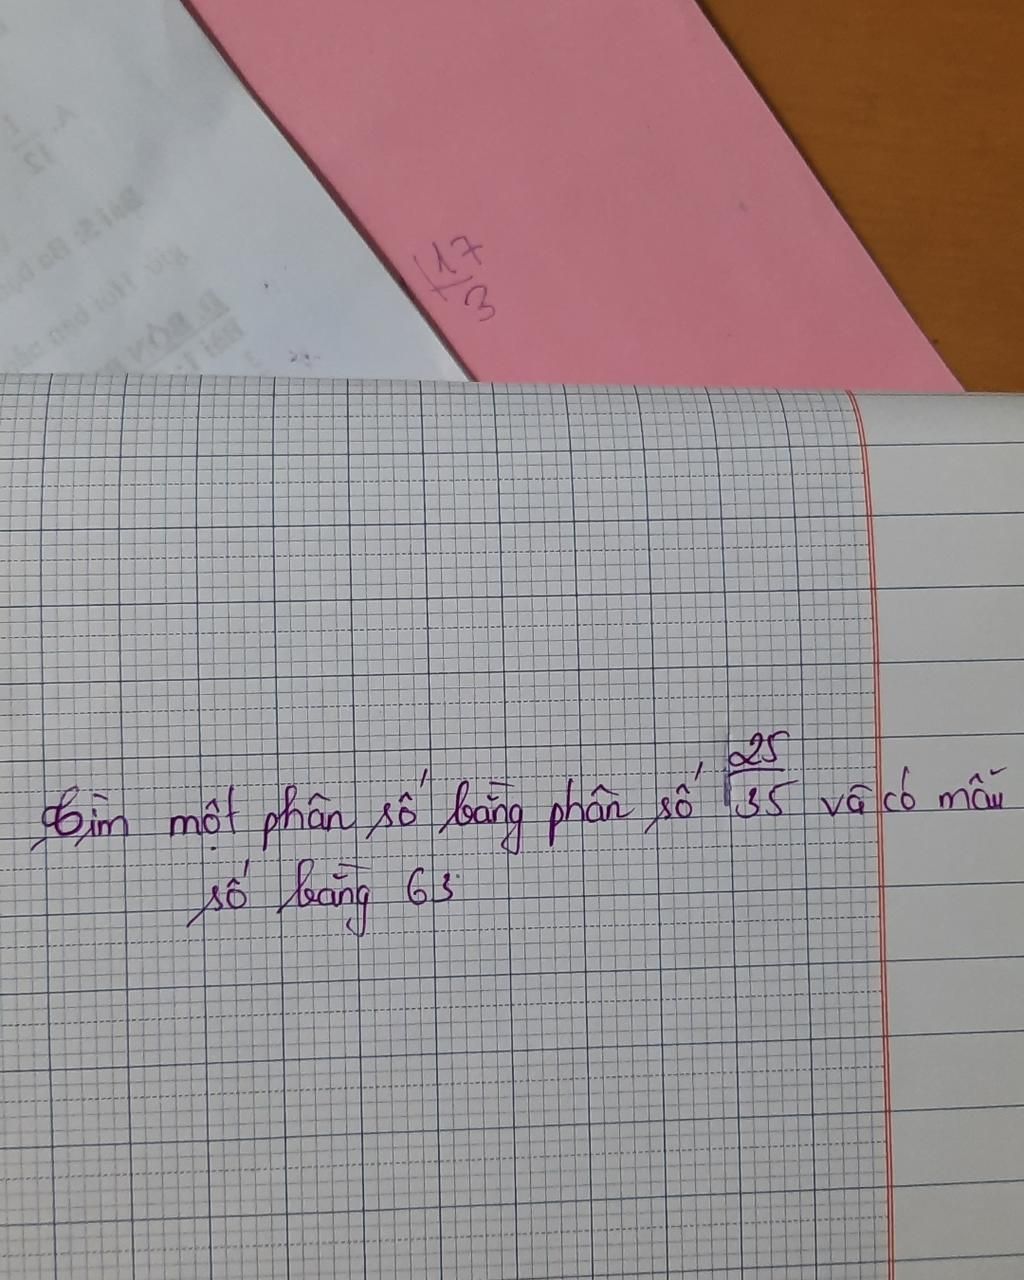 17
3
Tìm một phân số bằng phân số 25/35 và có mẫu
số bằng 63